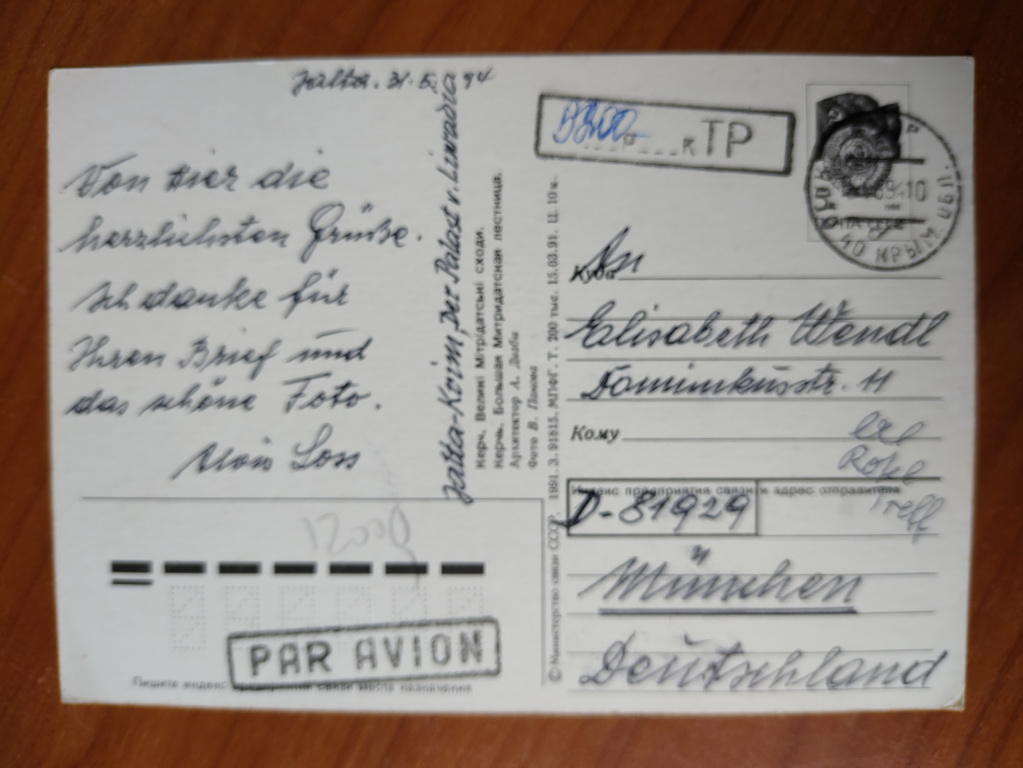 Jalta. 31.5. 94
Von hier die
herzlichsten Grüße.
Ich danke für
Ihren Brief und
das schöne Foto.
Alois Loss
Jalta-Krim, Der Palast v. Livadia
Керч. Великі Мітрідатські сходи.
Керчь. Большая Митридатская лестница.
Архитектор А. Дигби
Фото В. Панова
© Министерство связи СССР. 1991. З. 91815. МПФГ. Т. 200 тыс. 15.03.91. Ц. 10 к.
ТР
КРЫМ
An
Куда
Elisabeth Wendl
Dominikusstr. 11
Кому
Индекс предприятия связи и адрес отправителя
D-81929
München
Deutschland
12000
PAR AVION
Пишите индекс предприятия связи места назначения